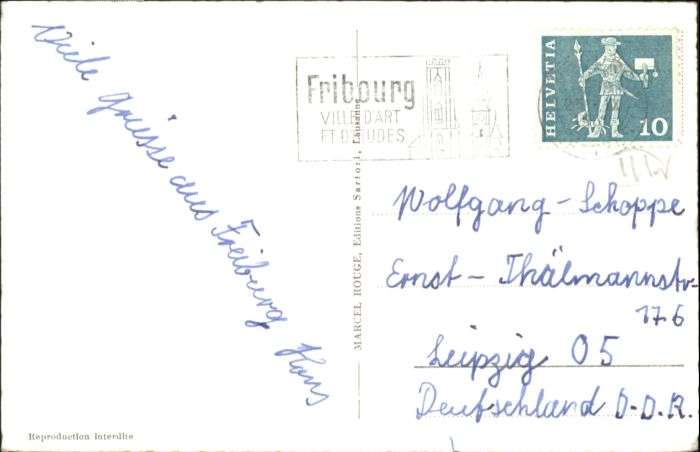 Viele Grüsse aus Freiburg Hans
Fribourg
VILLE D'ART
ET D'ETUDES
HELVETIA
10
Wolfgang-Schoppe
Ernst-Thälmannstr.
176
Leipzig O5
Deutschland D.D.R.
MARCEL ROUGE, Editions Sartori, Lausanne
Reproduction interdite